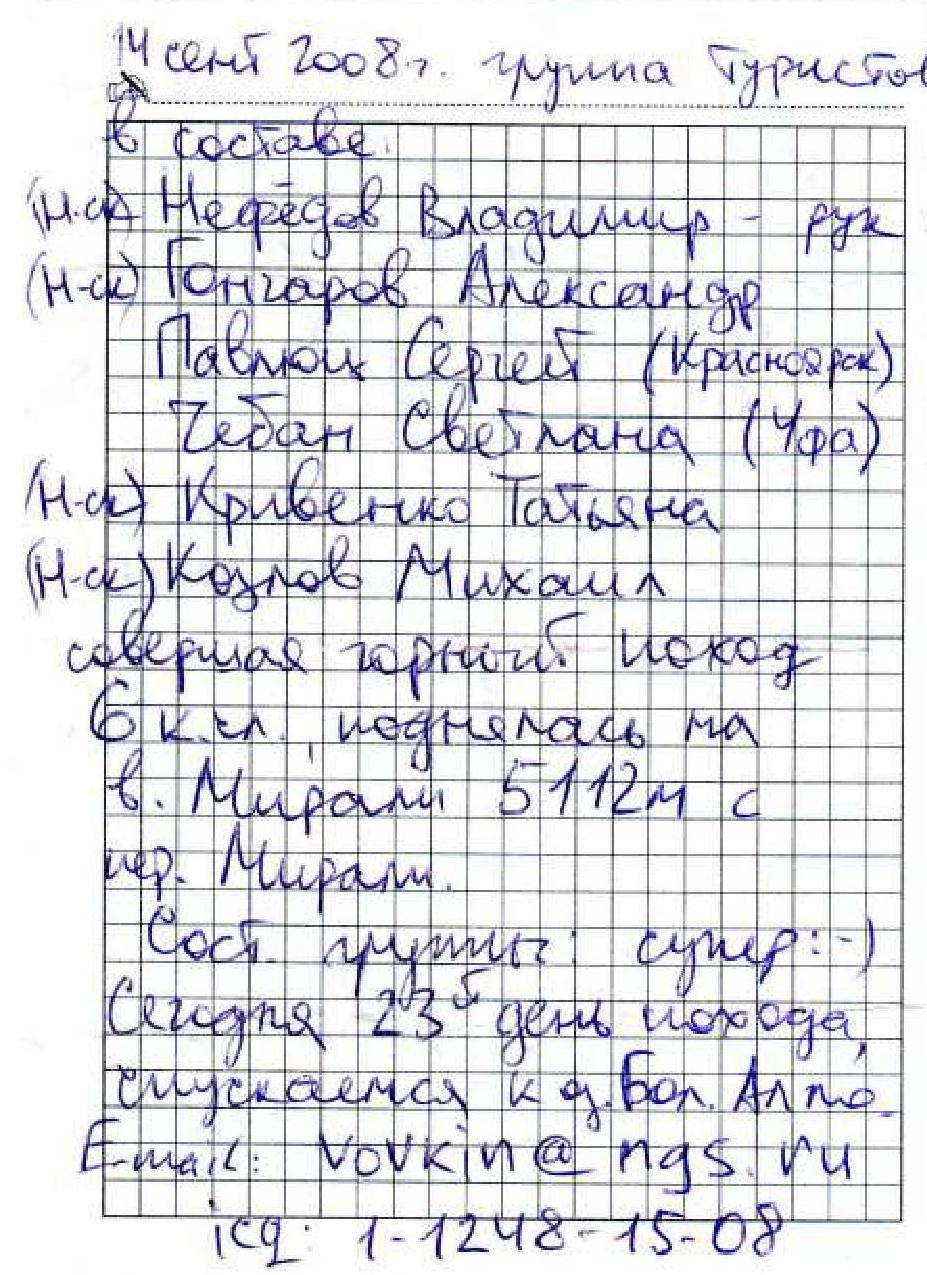 14 сент 2008г. группа Туристов
в составе:
(Н-ск) Нефёдов Владимир - рук
(Н-ск) Гончаров Александр
Павлюц Сергей (Красноярск)
Чебан Светлана (Уфа)
(Н-ск) Кривенко Татьяна
(Н-ск) Козлов Михаил
совершая горный поход
6 к.сл., поднялась на
в. Мирали 5112м с
пер. Мирали.
Сост. группы: супер:-)
Сегодня 23й день похода,
спускаемся к о. Бол. Алло.
E-mail: vovkin@ngs.ru
icq: 1-1248-15-08